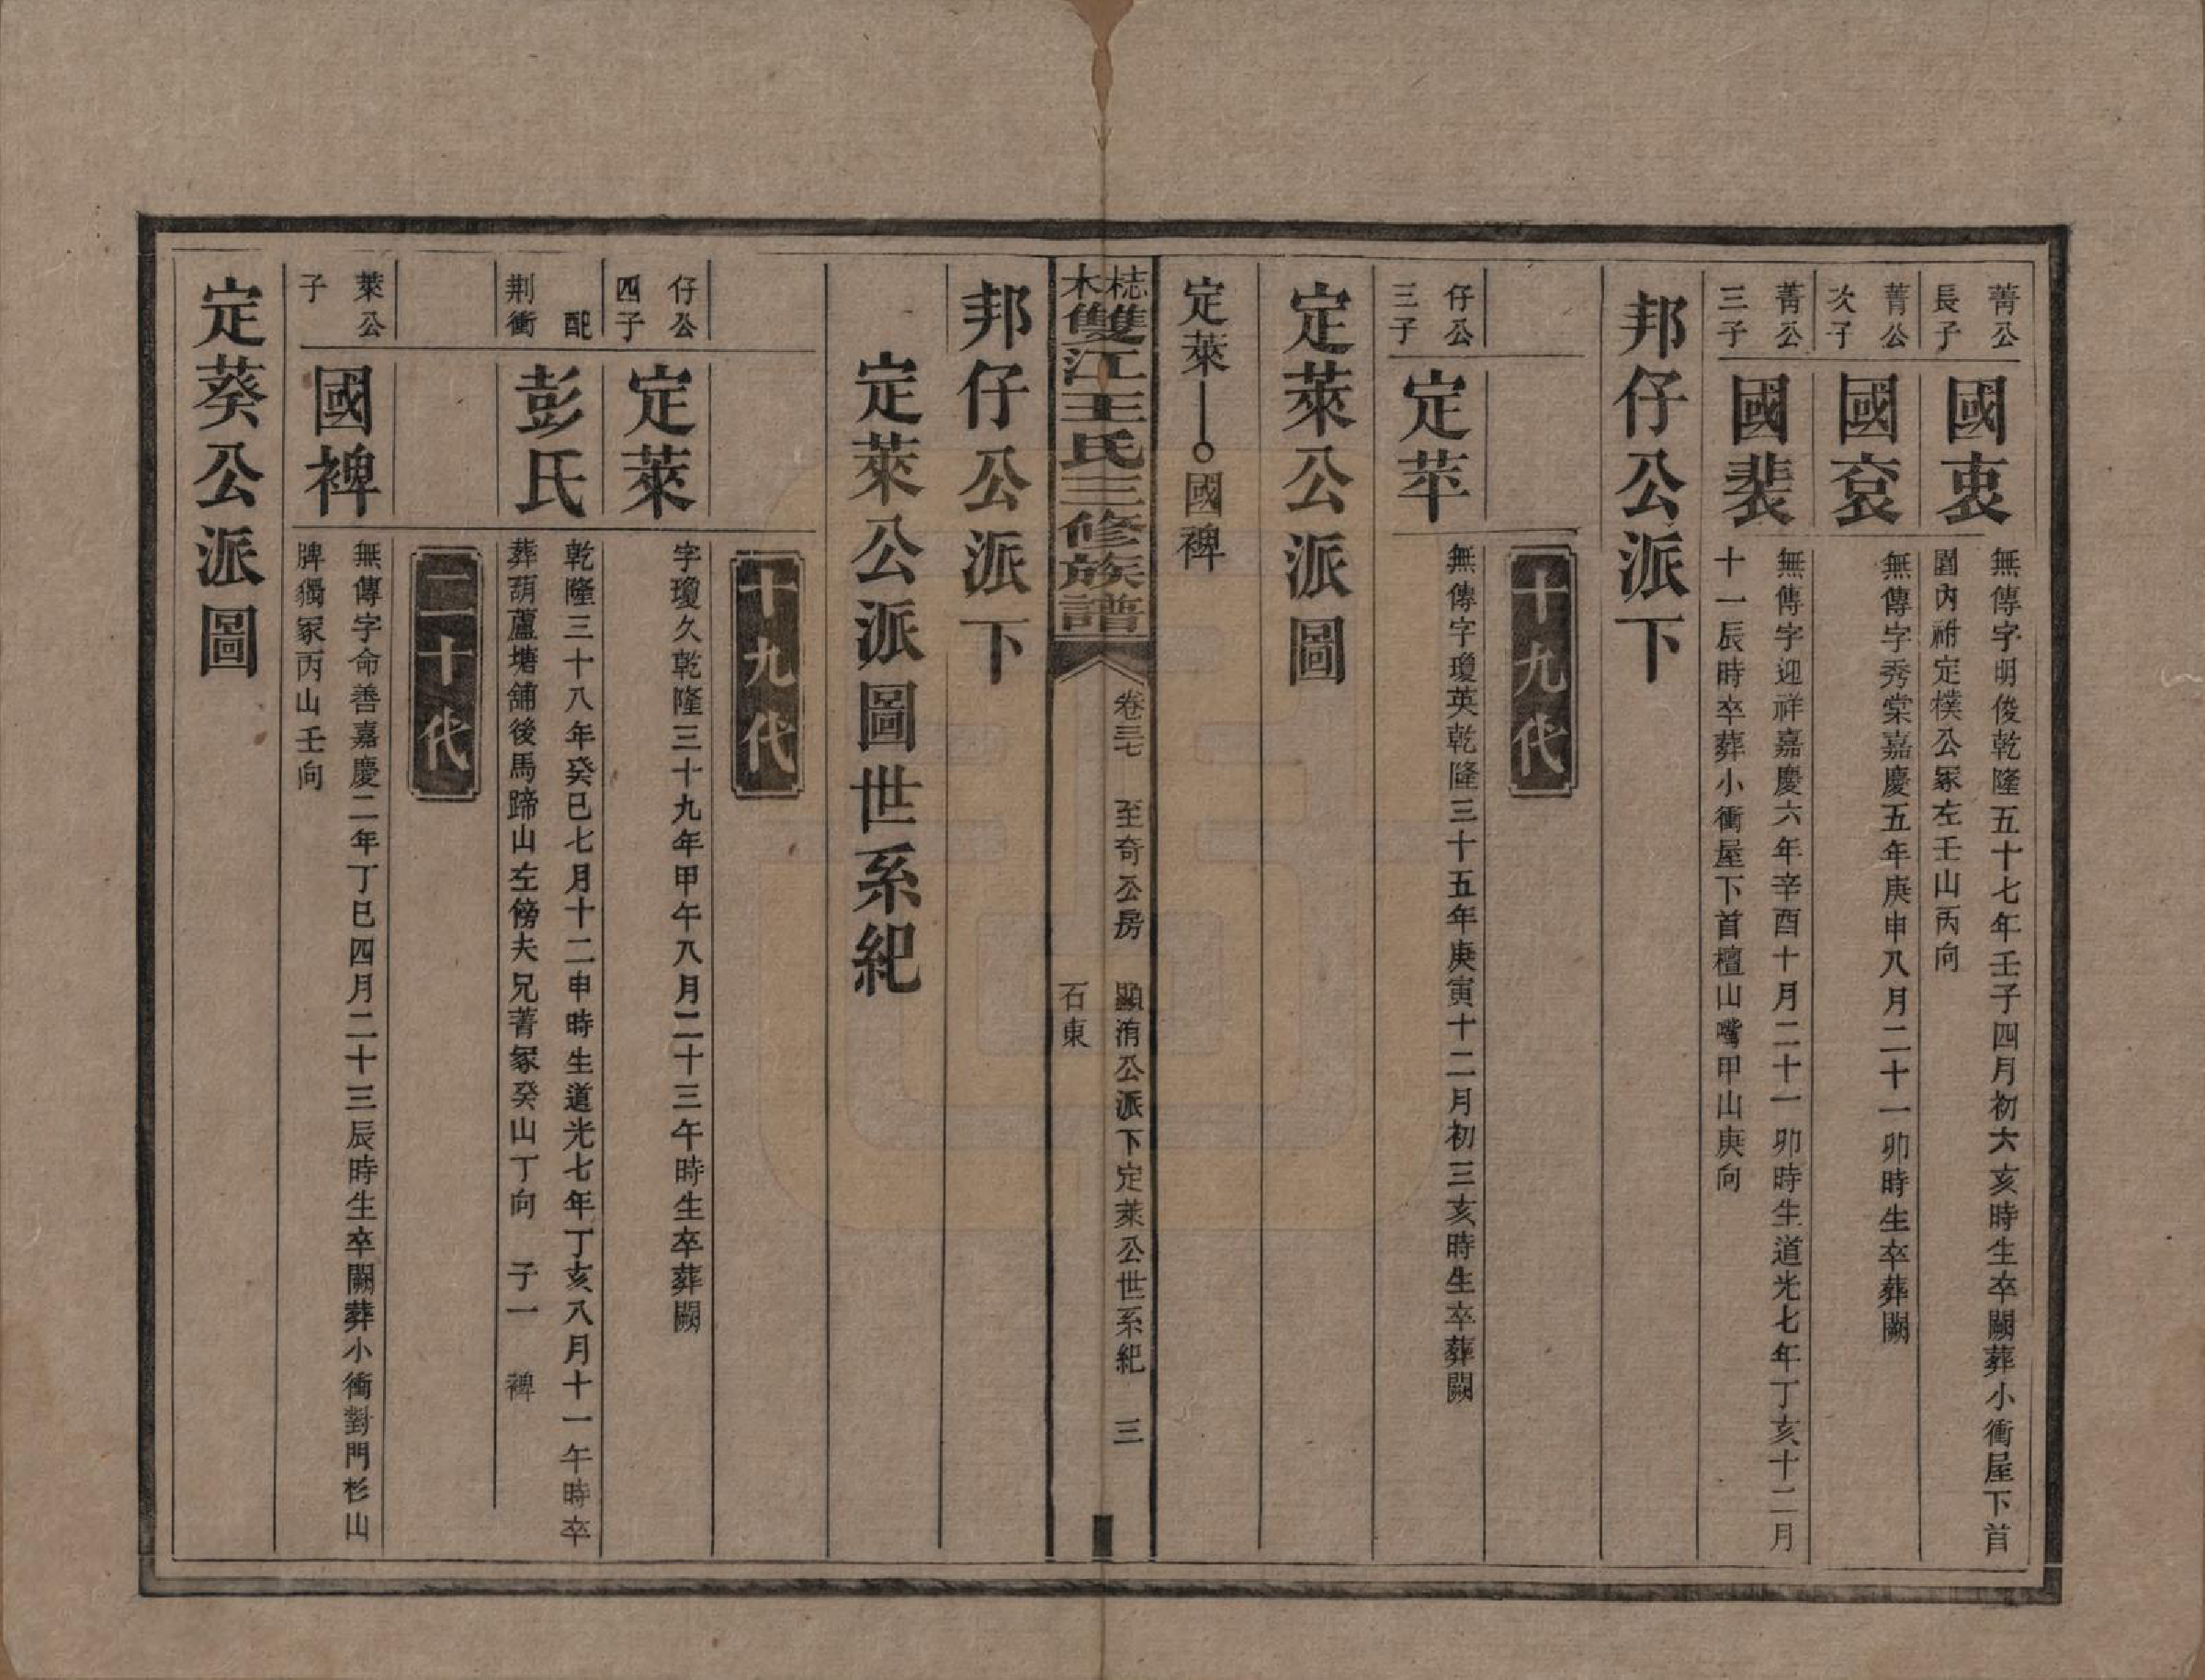 菁公長子
國衷
無傳字明俊乾隆五十七年壬子四月初六亥時生卒闕葬小衝屋下首
園內祔定樸公冢左壬山丙向
菁公次子
國袞
無傳字秀棠嘉慶五年庚申八月二十一卯時生卒葬闕
菁公三子
國裴
無傳字迎祥嘉慶六年辛酉十月二十一卯時生道光七年丁亥十二月
十一辰時卒葬小衝屋下首檀山嘴甲山庚向
邦仔公派下
十九代
仔公三子
定苹
無傳字瓊英乾隆三十五年庚寅十二月初三亥時生卒葬闕
定萊公派圖
定萊 國裨
梽木雙江王氏三修族譜
卷三七 至奇公房 顯洧公派下定萊公世系紀 三
石東
邦仔公派下
定萊公派圖世系紀
十九代
仔公四子
定萊
字瓊久乾隆三十九年甲午八月二十三午時生卒葬闕
配荆衝
彭氏
乾隆三十八年癸巳七月十二申時生道光七年丁亥八月十一午時卒
葬葫蘆塘舖後馬蹄山左傍夫兄菁冢癸山丁向 子一 裨
二十代
萊公子
國裨
無傳字命善嘉慶二年丁巳四月二十三辰時生卒闕葬小衝對門杉山
牌獨冢丙山壬向
定葵公派圖